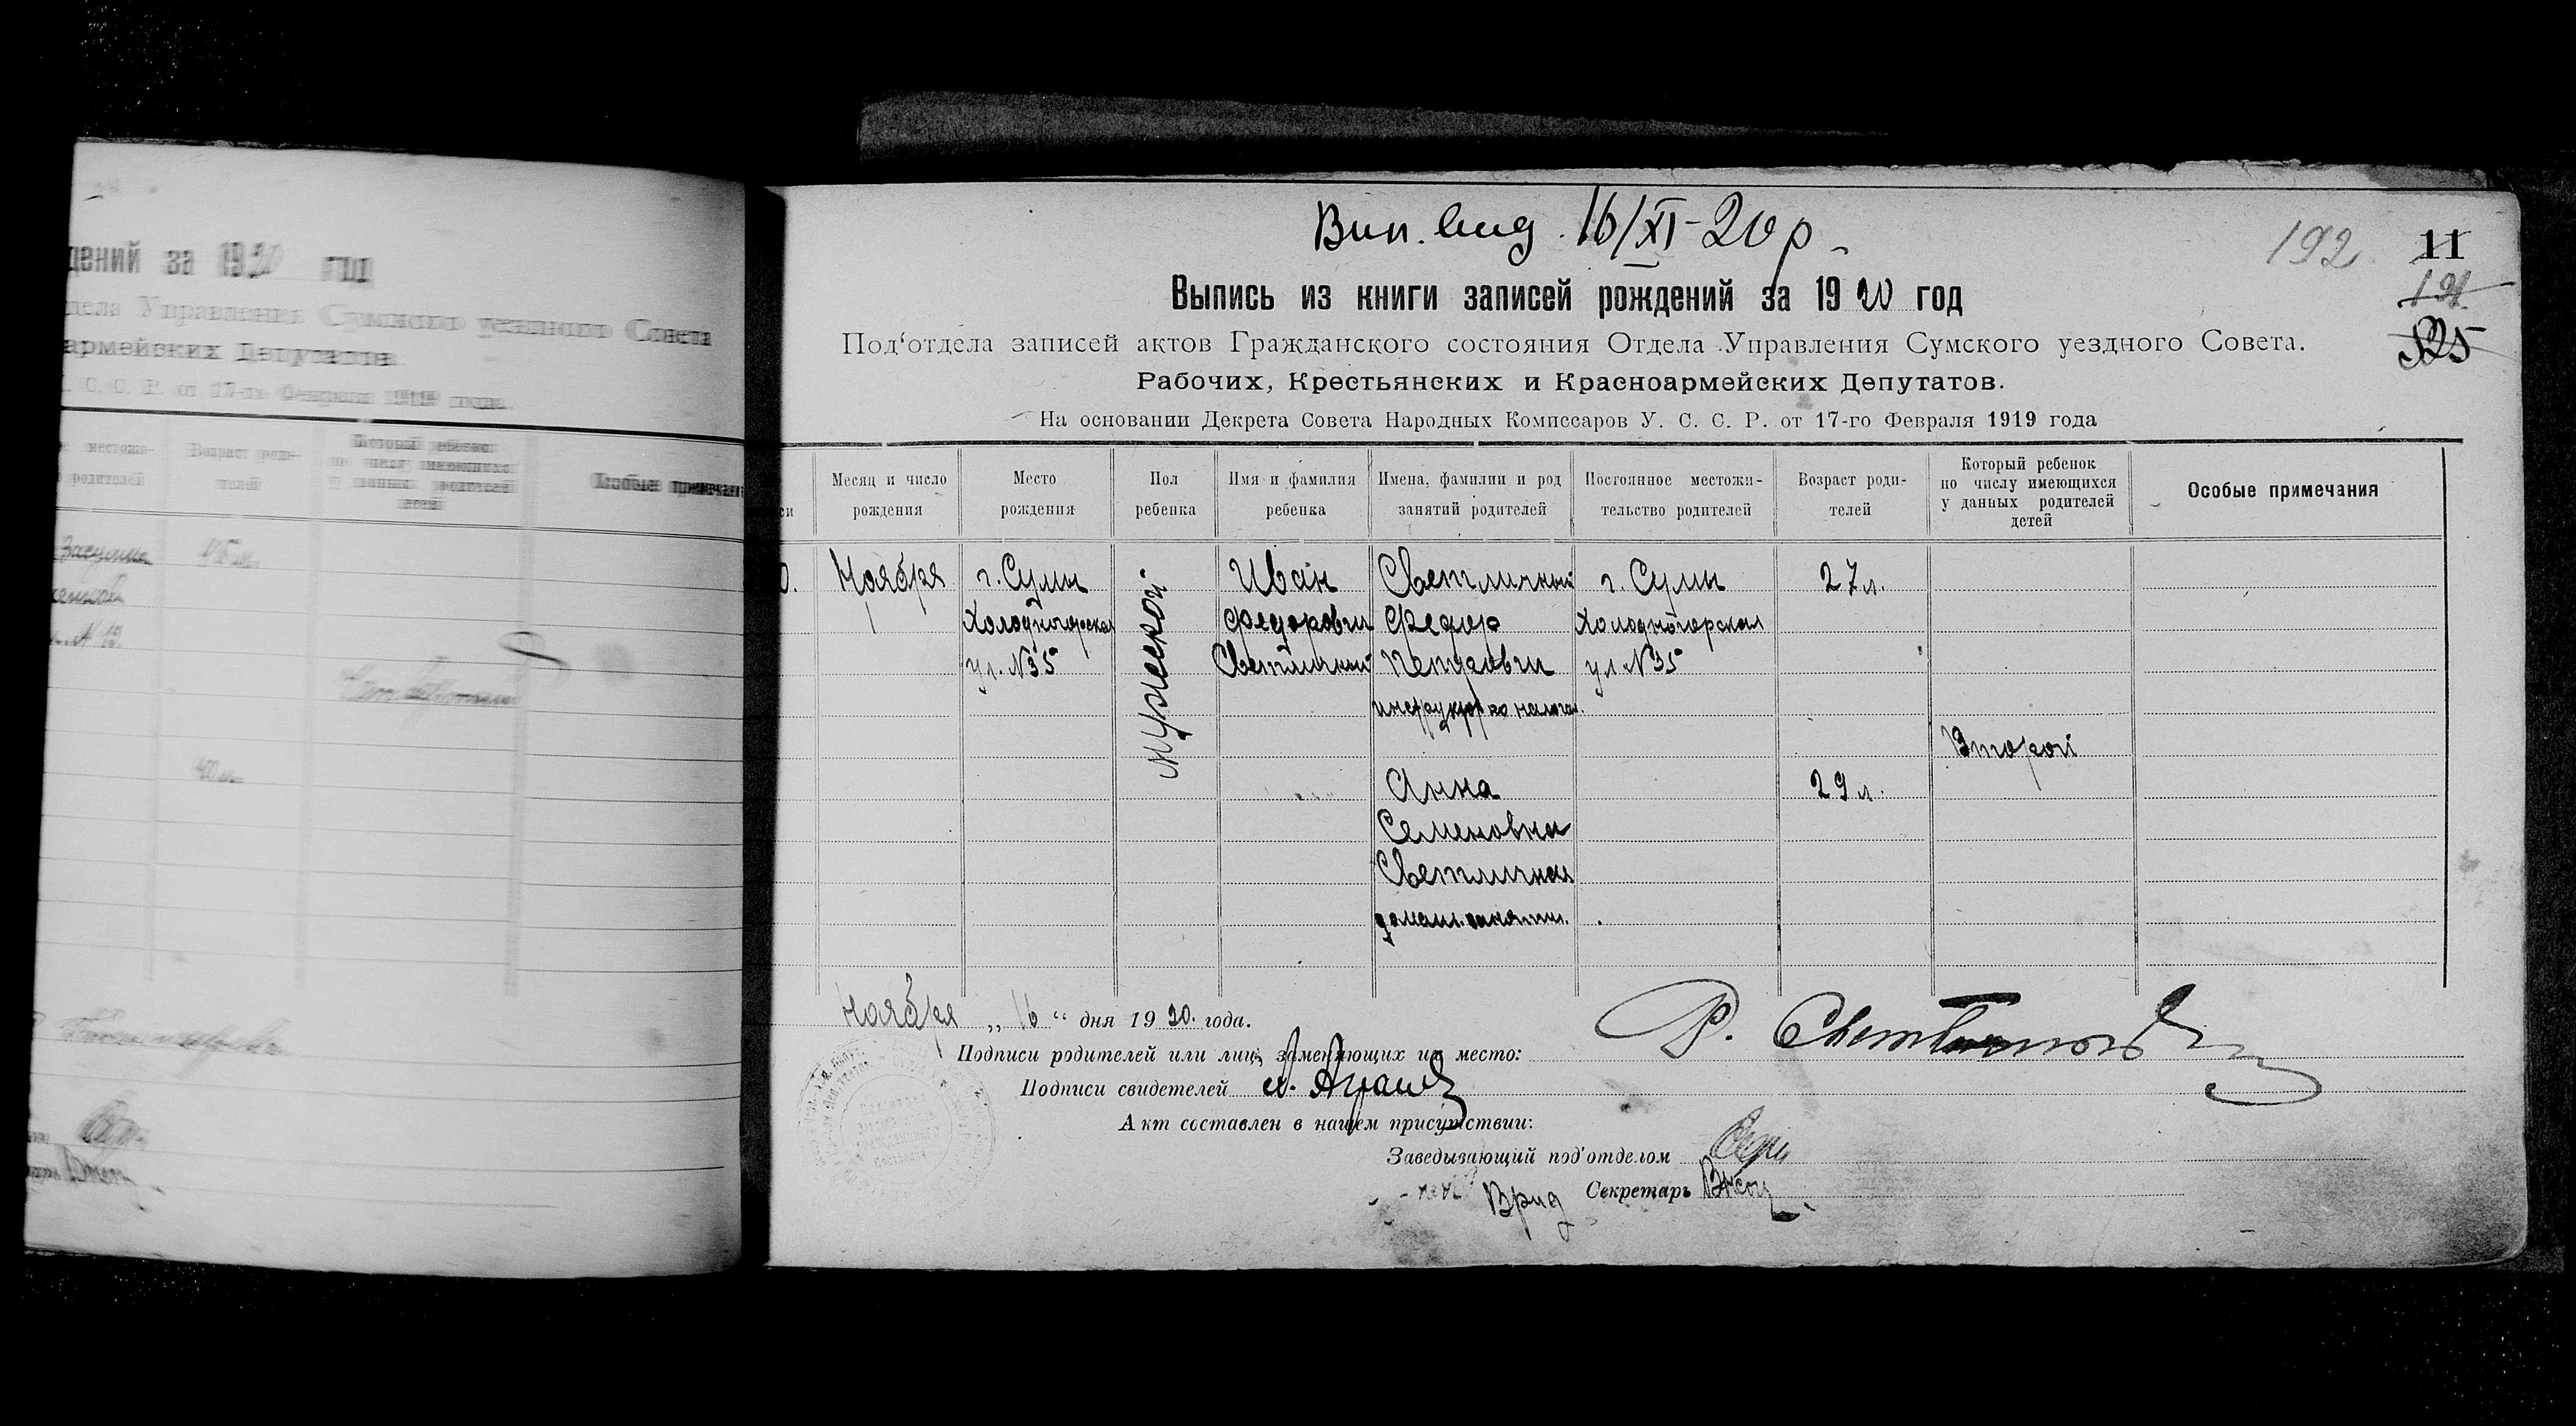 дений за 1920 год
дела Управления Сумского уездного Совета
армейских Депутатов
С. С. Р. от 17-го Февраля 1919 года
местожи- Возраст роди- Который ребенок
родителей телей по числу имеющихся Особые примечания
у данных родителей
детей
Вип. вид. 16/XI-20 р.
192 11
Выпись из книги записей рождений за 1920 год
Под'отдела записей актов Гражданского состояния Отдела Управления Сумского уездного Совета.
325
Рабочих, Крестьянских и Красноармейских Депутатов.
На основании Декрета Совета Народных Комиссаров У. С. С. Р. от 17-го Февраля 1919 года
си
Месяц и число рождения
Место рождения
Пол ребенка
Имя и фамилия ребенка
Имена, фамилии и род занятий родителей
Постоянное местожи-тельство родителей
Возраст роди-телей
Который ребенок по числу имеющихся у данных родителей детей
Особые примечания
Ноября г. Сумы Иван Светличный г. Сумы 27 л.
1 Холодногорская Федорович Федор Холодногорская
ул. №35 Светличный Петрович ул №35
мужеской
инструктор по налогам.
Второй
Анна 29 л.
Семеновна
Светличная
домаш. занятия.
Ноября „16“ дня 1920. года.
Подписи родителей или лиц, заменяющих их место:
Подписи свидетелей
Акт составлен в нашем присутствии:
Заведывающий под'отделом
Врид Секретарь